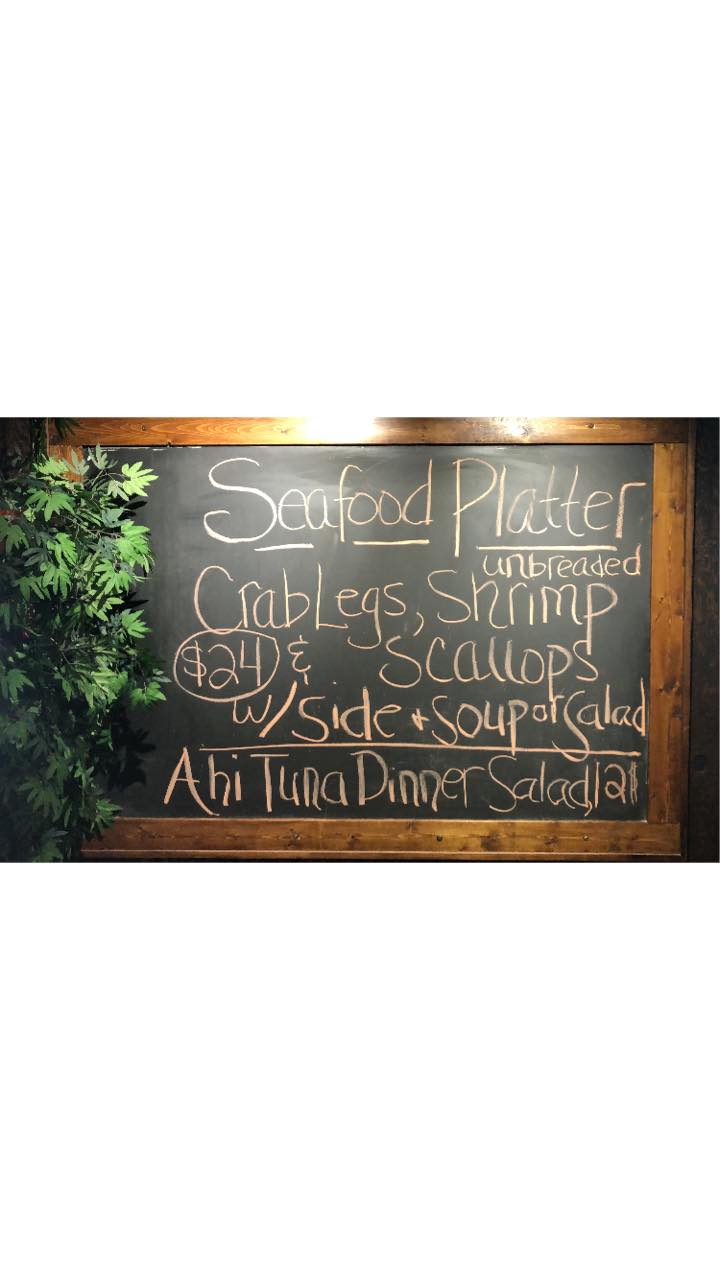 Seafood Platter
unbreaded
Crab Legs, Shrimp
$24 & Scallops
w/ Side + Soup or Salad
Ahi Tuna Dinner Salad